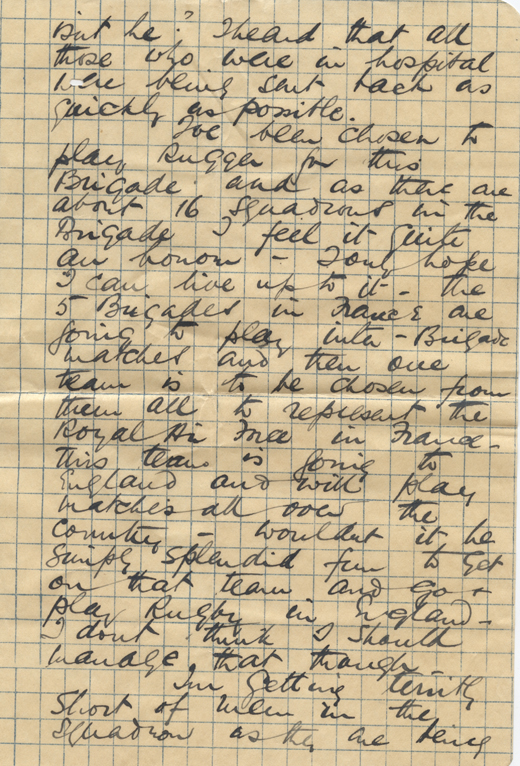 But he? I heard that all
those who were in hospital
were being sent back as
quickly as possible.
I've been chosen to
play Rugger for this
Brigade and as there are
about 16 Squadrons in the
Brigade I feel it quite
an honour - I only hope
I can live up to it - the
5 Brigades in France are
going to play inter-Brigade
matches and then one
team is to be chosen from
them all to represent the
Royal Air Force in France -
this team is going to
England and will play
matches all over the
country - wouldn't it be
simply splendid fun to get
on that team and go +
play Rugby in England -
I dont think I should
manage that though.
I'm getting terribly
short of men in the
Squadron as they are being